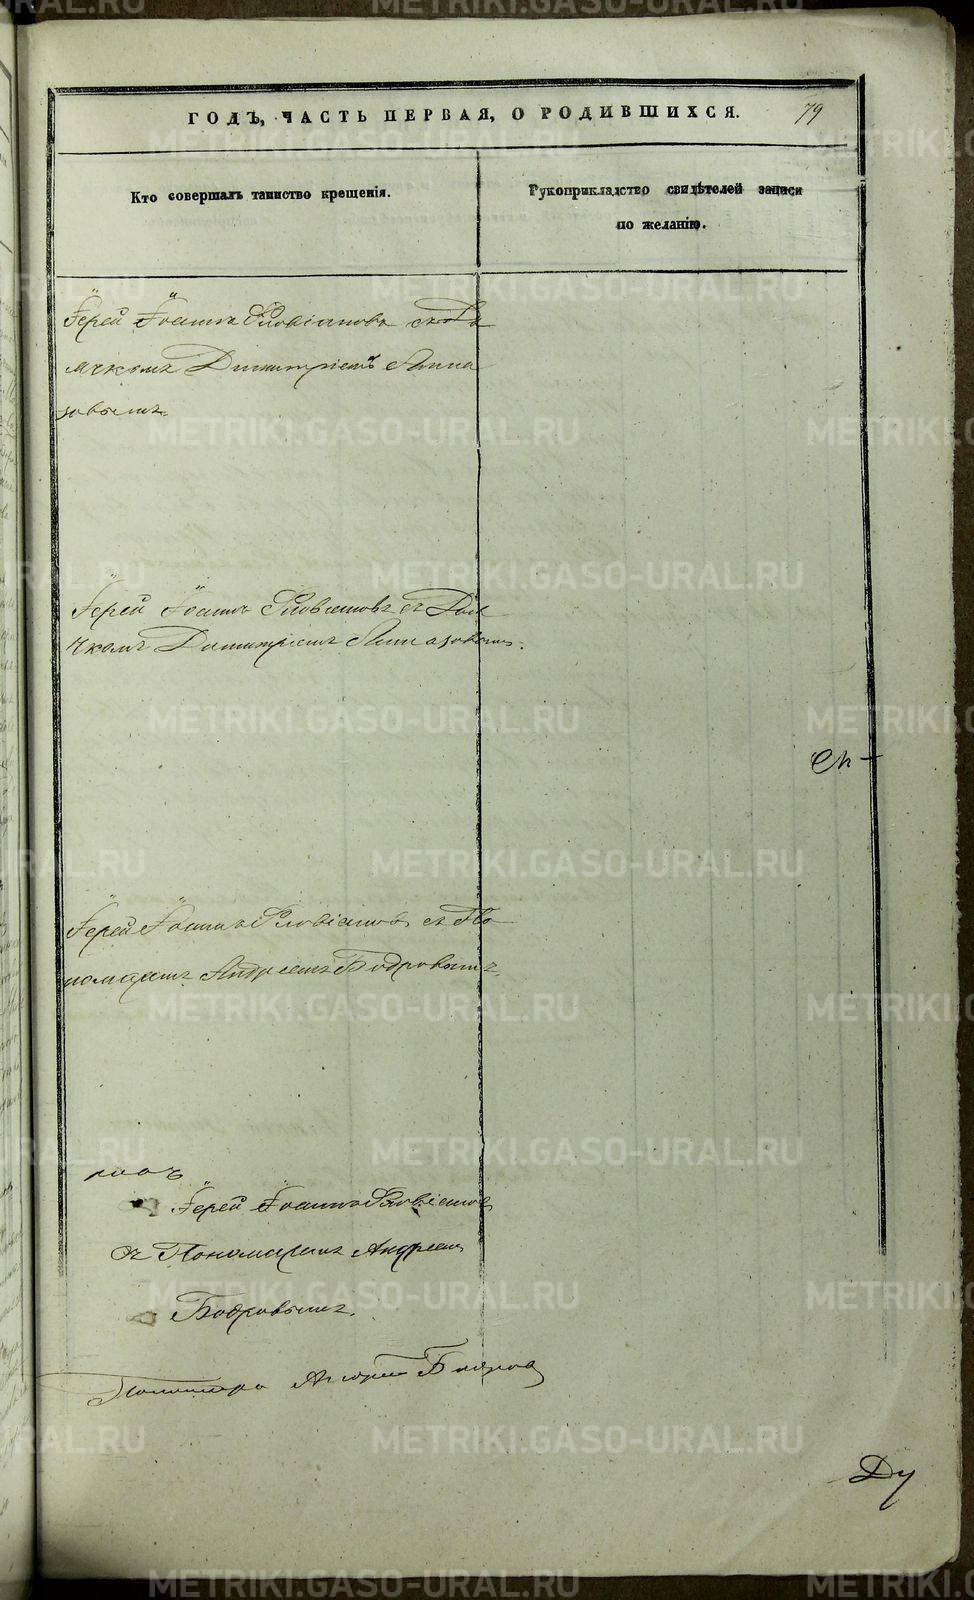 ГОДЪ, ЧАСТЬ ПЕРВАЯ, О РОДИВШИХСЯ.
79
Кто совершалъ таинство крещенія.
Рукоприкладство свидѣтелей записи
по желанію.
Іерей Іоаннъ Словіановъ съ Дья
чкомъ Димитріемъ
зовымъ.
Іерей Іоаннъ Словіановъ съ Дья
чкомъ Димитріемъ
Іерей Іоаннъ Словіановъ съ По
номаремъ Андреемъ Бодровымъ.
Іерей Іоаннъ Словіановъ
съ Пономаремъ Андреем
Бодровымъ.
Пономарь Андрей Бодров
Ду
METRIKI.GASO-URAL.RU